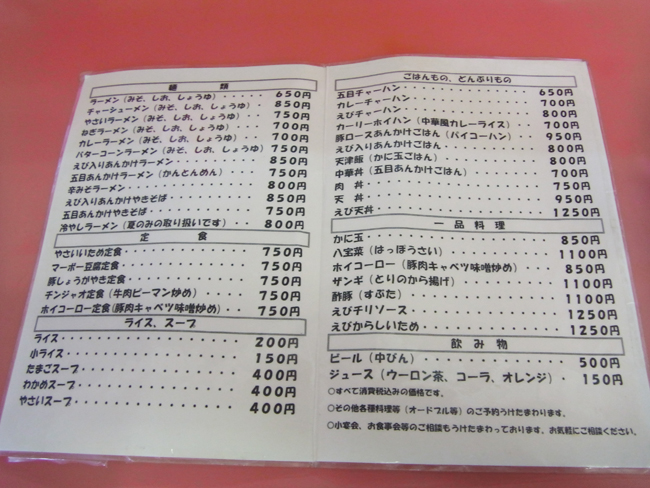 麺 類
ラーメン(みそ、しお、しょうゆ)・・・・・650円
チャーシューメン(みそ、しお、しょうゆ)・850円
やさいラーメン(みそ、しお、しょうゆ)・・750円
ねぎラーメン(みそ、しお、しょうゆ)・・・700円
カレーラーメン(みそ、しお、しょうゆ)・・700円
バターコーンラーメン(みそ、しお、しょうゆ)・750円
えび入りあんかけラーメン・・・・・・・・850円
五目あんかけラーメン(かんとんめん)・・・750円
辛みそラーメン・・・・・・・・・・・・・800円
えび入りあんかけやきそば・・・・・・・・850円
五目あんかけやきそば・・・・・・・・・・750円
冷やしラーメン(夏のみの取り扱いです)・・800円
定 食
やさいいため定食・・・・・・・・・・・・750円
マーボー豆腐定食・・・・・・・・・・・・750円
豚しょうがやき定食・・・・・・・・・・・750円
チンジャオ定食(牛肉ピーマン炒め)・・・・750円
ホイコーロー定食(豚肉キャベツ味噌炒め)・・750円
ライス、スープ
ライス・・・・・・・・・・・・・・・・・200円
小ライス・・・・・・・・・・・・・・・・150円
たまごスープ・・・・・・・・・・・・・・400円
わかめスープ・・・・・・・・・・・・・・400円
やさいスープ・・・・・・・・・・・・・・400円
ごはんもの、どんぶりもの
五目チャーハン・・・・・・・・・・・・・650円
カレーチャーハン・・・・・・・・・・・・700円
えびチャーハン・・・・・・・・・・・・・800円
カーリーホイハン(中華風カレーライス)・・700円
豚ロースあんかけごはん(パイコーハン)・・950円
えび入りあんかけごはん・・・・・・・・・800円
天津飯(かに玉ごはん)・・・・・・・・・・800円
中華丼(五目あんかけごはん)・・・・・・・700円
肉 丼・・・・・・・・・・・・・・・・・750円
天 丼・・・・・・・・・・・・・・・・・950円
えび天丼・・・・・・・・・・・・・・・・1250円
一 品 料 理
かに玉・・・・・・・・・・・・・・・・・850円
八宝菜(はっぽうさい)・・・・・・・・・・1100円
ホイコーロー(豚肉キャベツ味噌炒め)・・・850円
ザンギ(とりのから揚げ)・・・・・・・・・1100円
酢豚(すぶた)・・・・・・・・・・・・・・1100円
えびチリソース・・・・・・・・・・・・・1250円
えびからしいため・・・・・・・・・・・・1250円
飲 み 物
ビール(中びん)・・・・・・・・・・・・・500円
ジュース(ウーロン茶、コーラ、オレンジ)・150円
○すべて消費税込みの価格です。
○その他各種料理等(オードブル等)のご予約うけたまわります。
○小宴会、お食事会等のご相談もうけたまわっております、お気軽にご相談ください。